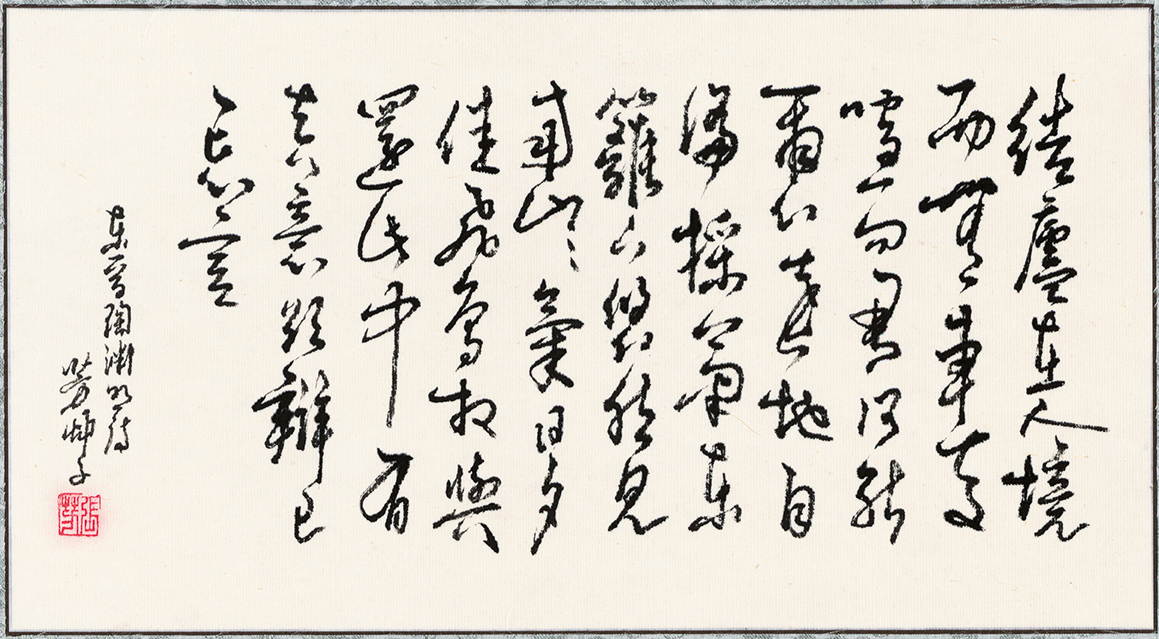 結廬在人境
而無車馬
喧問君何能
爾心遠地自
偏採菊東
籬下悠然見
南山〻氣日夕
佳飛鳥相與
還此中有
真意欲辯已
忘言
東晉陶淵明詩
芳